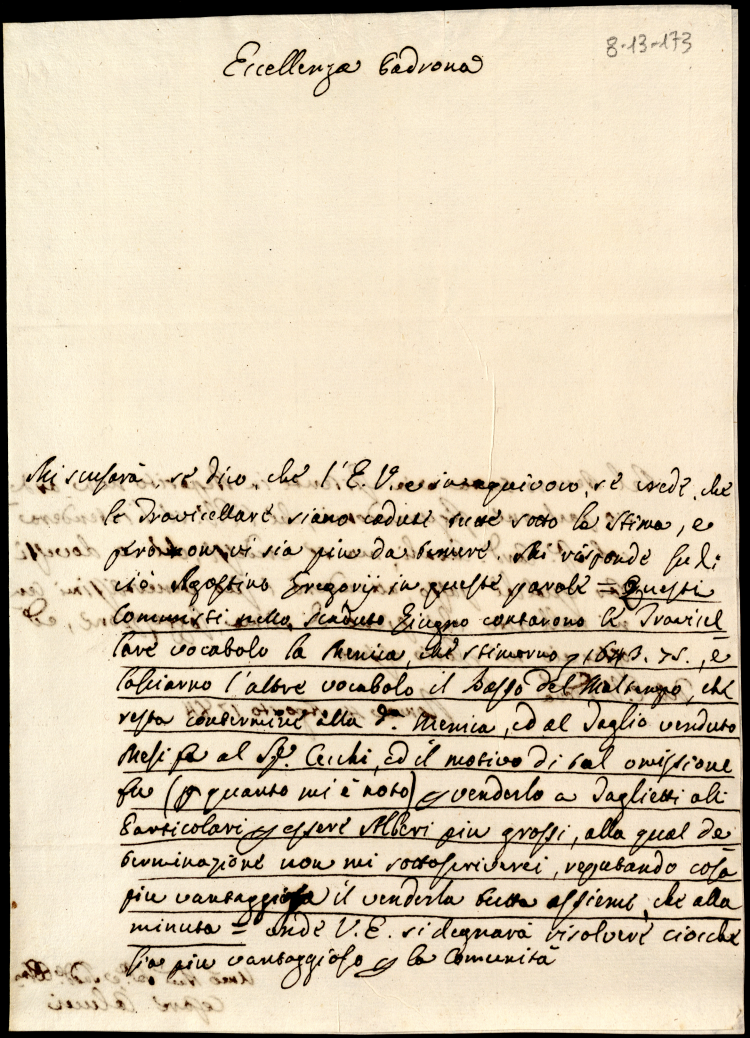 8-13-173
Eccellenza Padrona
Mi scuserà, se dico, che l'E. V. e in equivoco, se crede, che
le Travicellare siano cadute tutte sotto la stima, e
però non vi sia più da temere. Mi risponde su di
ciò Agostino Gregorij in queste parole = Questi
Comunisti nello scaduto Giugno contarono le Travicel=
lare vocabolo la Menica, che stimorno 1643. 75., e
lasciarno l'altre vocabolo il Passo del Maltempo, che
resta conterminé alla d.ª Menica, ed al Taglio venduto
Mesi fa al Sig.r Cecchi, ed il motivo di tal omissione
fu (p quanto mi è noto) p venderlo a Taglietti alli
Particolari p essere Alberi più grossi, alla qual de=
terminazione non mi sottoscriverei, reputando cosa
più vantaggiosa il venderla tutta assieme, che alla
minuta = onde V. E. si degnarà risolvere ciocché
sia più vantaggioso p la Comunità